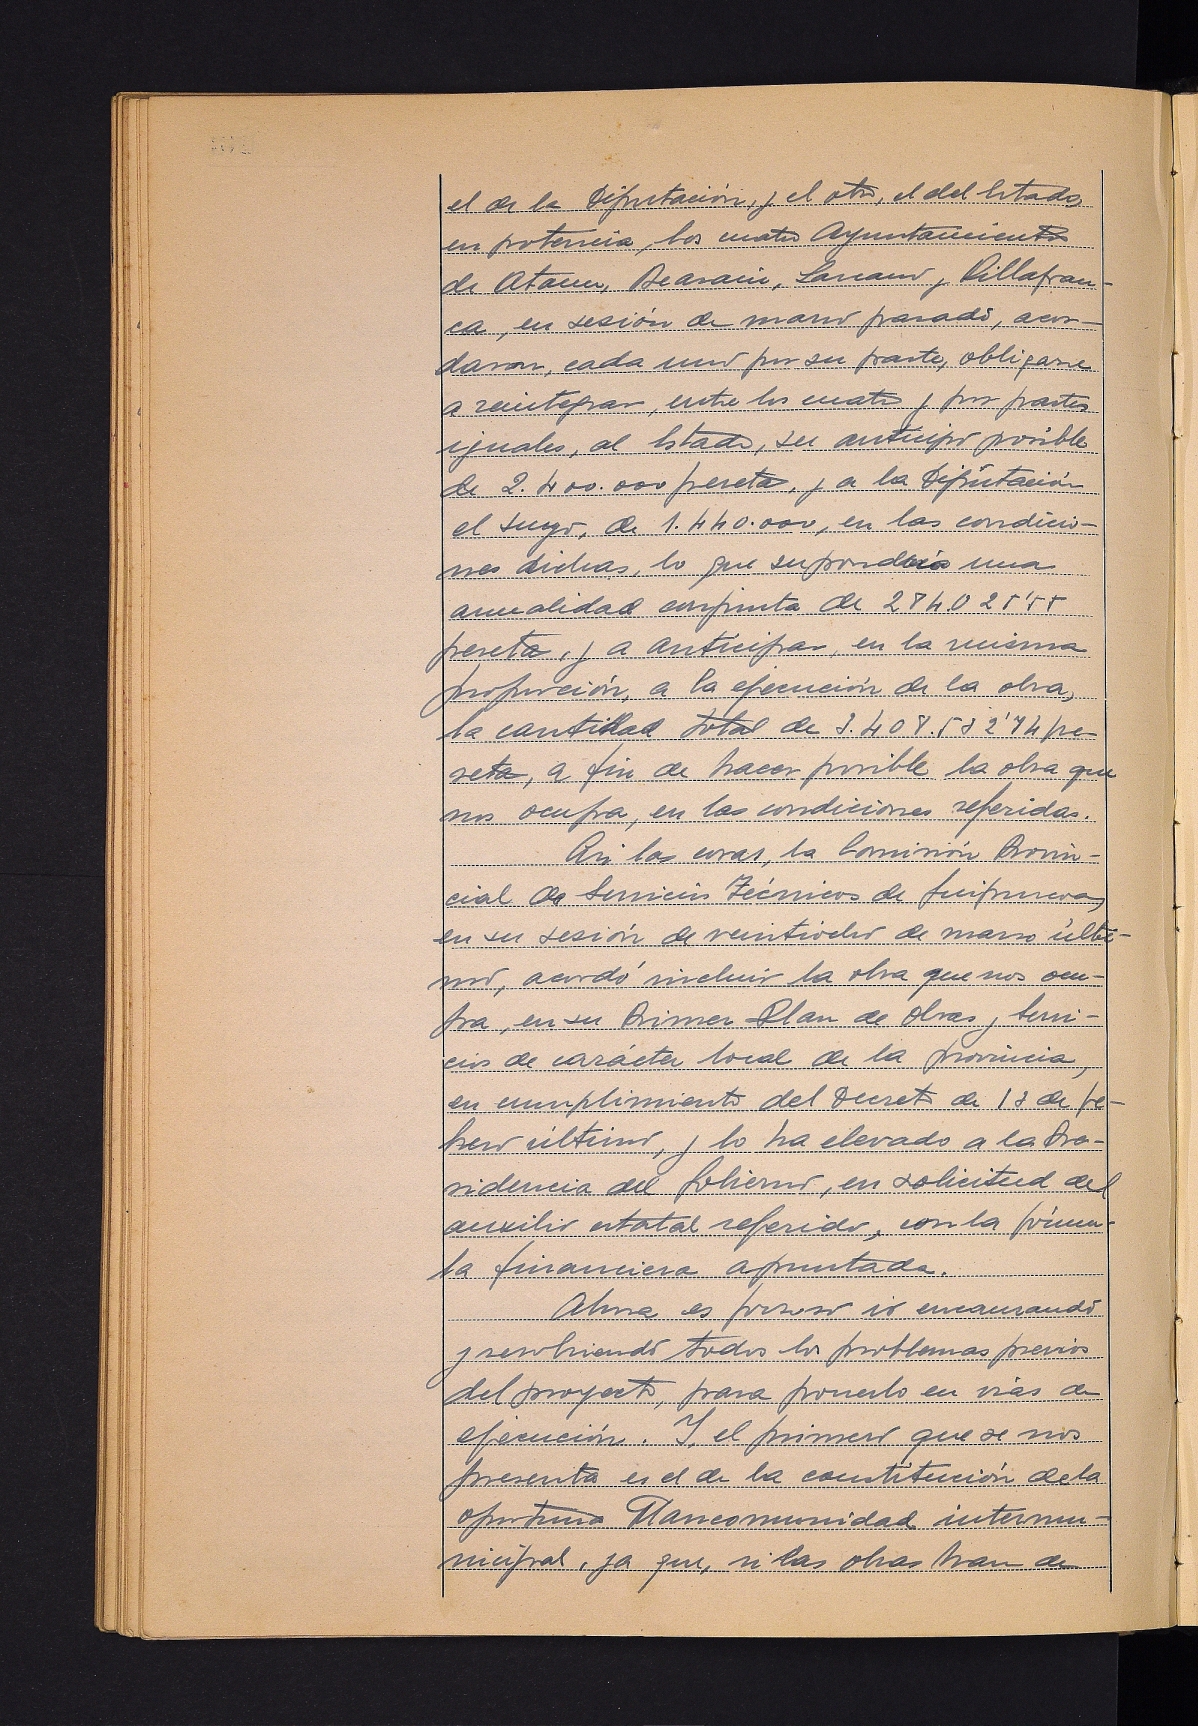 el de la Diputación, y el otro, el del Estado,
en potencia, los cuatro Ayuntamientos
de Ataun, Beasain, Lazcano y Villafran-
ca, en sesión de marzo pasado, acor-
daron, cada uno por su parte, obligarse
a reintegrar, entre los cuatro y por partes
iguales, al Estado, su anticipo posible
de 2.400.000 pesetas, y a la Diputación
el suyo, de 1.440.000, en las condicio-
nes dichas, lo que supondría una
anualidad conjunta de
pesetas, y a anticipar, en la misma
proporción, a la ejecución de la obra,
la cantidad total de pe-
setas, a fin de hacer posible la obra que
nos ocupa, en las condiciones referidas.
Así las cosas, la Comisión Provin-
cial de Servicios Técnicos de Guipúzcoa,
en su sesión de veintiocho de marzo últi-
mo, acordó incluir la obra que nos ocu-
pa, en su Primer Plan de Obras y Servi-
cios de carácter local de la provincia,
en cumplimiento del Decreto de 13 de fe-
brero último, y lo ha elevado a la Pre-
sidencia del Gobierno, en solicitud del
auxilio estatal referido, con la fórmu-
la financiera apuntada.
Ahora es forzoso ir encauzando
y resolviendo todos los problemas previos
del proyecto, para ponerlo en vías de
ejecución. Y, el primero que se nos
presenta es el de la constitución de la
oportuna Mancomunidad intermu-
nicipal, ya que, si las obras han de